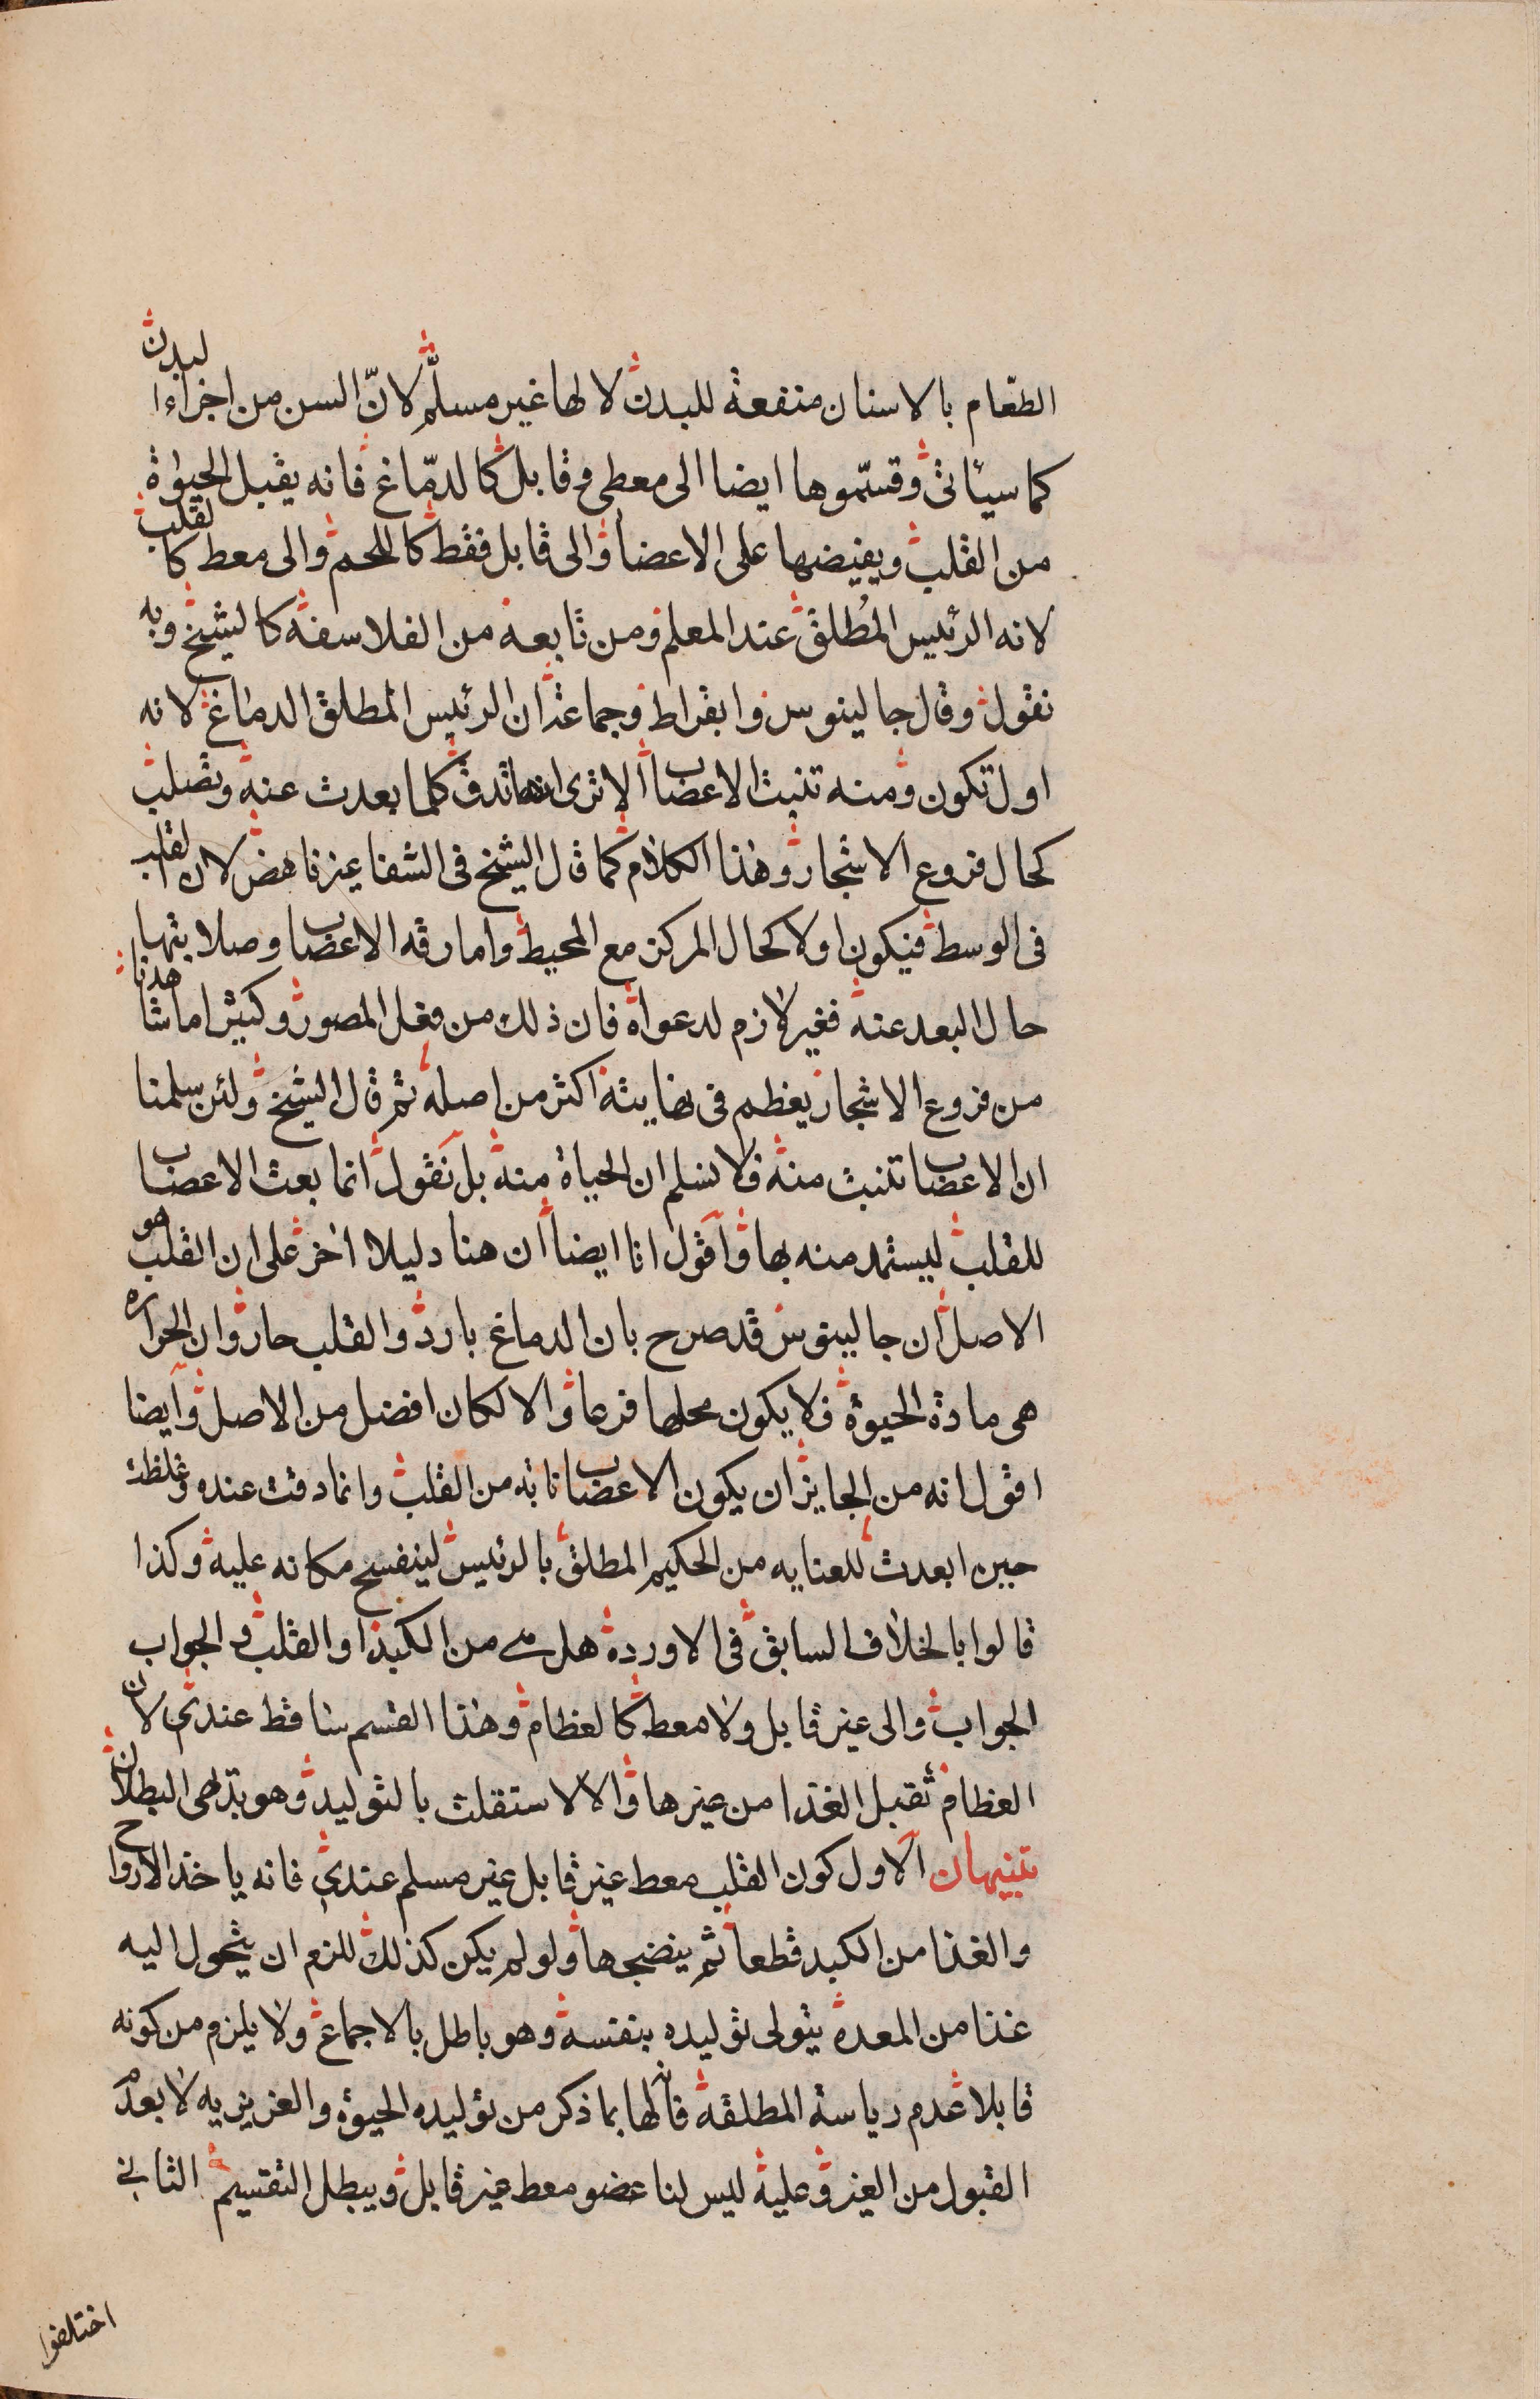 الطّعام بالاسنان منفعة للبدن لا لها غير مسلّم لانّ السن من اجزاء البدن
كما سيأتى وقسّموها ايضا الى معطى وقابل كالدمّاغ فانه يقبل الحيوة
من القلب ويفيضها على الاعضا والى قابل فقط كاللحم والى معط كالقلب
لانه الرئيس المُطلق عند المعلم ومن تابعه من الفلاسفة كالشيخ وبه
نقول وقال جالينوس وابقراط وجماعة ان الرئيس المطلق الدماغ لانه
اول تكون ومنه تنبت الاعصاب الا ترى انها تدق كلما بعدت عنه وتصلب
كحال فروع الاشجار وهذا الكلام كما قال الشيخ فى الشفا غير ناهض لان القلب
فى الوسط فيكون اولا كحال المركز مع المحيط واما رقه الاعصاب وصلابتها
حال البعد عنه فغير لازم لدعواه فان ذلك من فعل المصور وكثيرا ما شاهدنا
من فروع الاشجار يغظم فى نهايته اكثر من اصله ثم قال الشيخ ولئن سلمنا
ان الاعصاب تنبت منه فلا نسلم ان الحياة منه بل نقول انما بعث الاعصاب
للقلب ليستمد منه بها واقول انا ايضا ان هنا دليلا اخر على ان القلب هو
الاصل ان جالينوس قد صرح بان الدماغ بارد والقلب حار وان الحراره
هى مادة الحيوة فلا يكون محلها فرعا والا لكان افضل من الاصل وايضا
اقول انه من الجايز ان يكون الاعصاب نابته من القلب وانما دقت عنده وغلظت
حين ابعدت للعنايه من الحكيم المطلق بالرئيس لينفسح مكانه عليه وكذا
قالوا بالخلاف السابق فى الاوردة هل هى من الكبد او القلب والجواب
الجواب والى غير قابل ولا معط كالعظام وهذا القسم ساقط عندى لان
العظام تقبل الغذا من غيرها والا لاستقلت بالتوليد وهو بدهى البطلان
تنبيهان الاول كون القلب معط غير قابل غير مسلم عندى فانه ياخذ الارواح
والغذا من الكبد قطعا ثم ينضجها ولو لم يكن كذلك للزم ان يتحول اليه
غذا من المعدة يتولى توليده بنفسه وهو باطل بالاجماع ولا يلزم من كونه
قابلا عدم رياسة المطلقة فانها بما ذكر من توليده الحيوة والغريزيه لا بعدم
القبول من الغير وعليه ليس لنا عضو معط غير قابل ويبطل التقسيم الثانى
اختلفوا